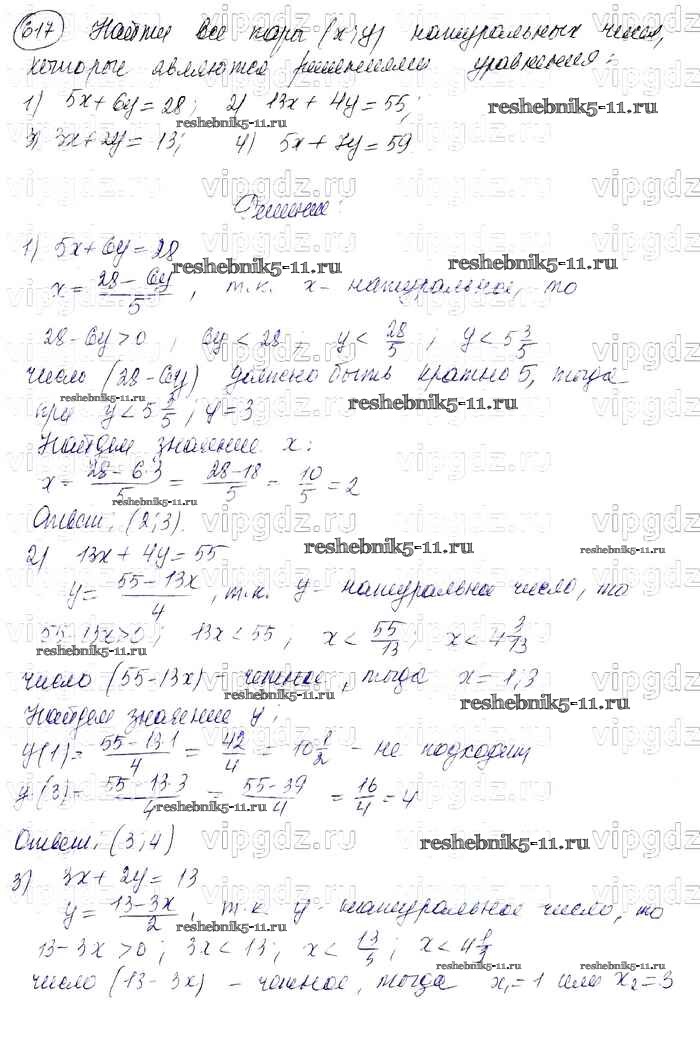 617 Найти все пары (x; y) натуральных чисел,
которые являются решениями уравнения:
1) 5x + 6y = 28; 2) 13x + 4y = 55;
3) 3x + 2y = 13; 4) 5x + 7y = 59
Решение:
1) 5x + 6y = 28
x = (28 - 6y)/5, т.к. x - натуральное, то
28 - 6y > 0; 6y < 28; y < 28/5; y < 5 3/5
число (28 - 6y) должно быть кратно 5, тогда
при y < 5 3/5; y = 3
Найдем значение x:
x = (28 - 6·3)/5 = (28 - 18)/5 = 10/5 = 2
Ответ: (2; 3)
2) 13x + 4y = 55
y = (55 - 13x)/4, т.к. y - натуральное число, то
55 - 13x > 0; 13x < 55; x < 55/13; x < 4 3/13
число (55 - 13x) - четное, тогда x = 1; 3
Найдем значение y:
y(1) = (55 - 13·1)/4 = 42/4 = 10 1/2 - не подходит
y(3) = (55 - 13·3)/4 = (55 - 39)/4 = 16/4 = 4
Ответ: (3; 4)
3) 3x + 2y = 13
y = (13 - 3x)/2, т.к. y - натуральное число, то
13 - 3x > 0; 3x < 13; x < 13/3; x < 4 1/3
число (13 - 3x) - четное, тогда x₁ = 1 или x₂ = 3
vipgdz.ru
reshebnik5-11.ru